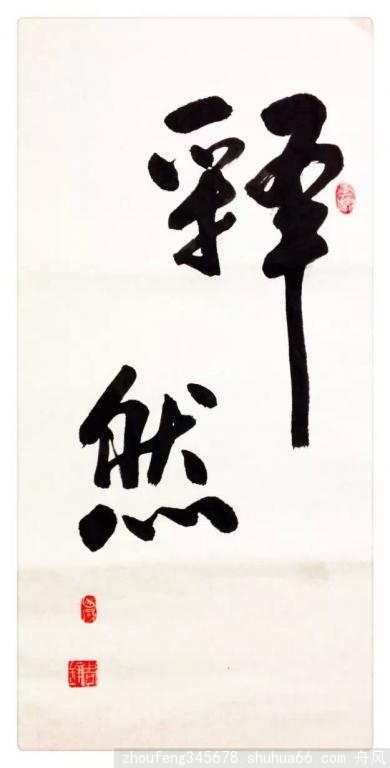 释然
zhoufeng345678.shuhua66.com 舟风